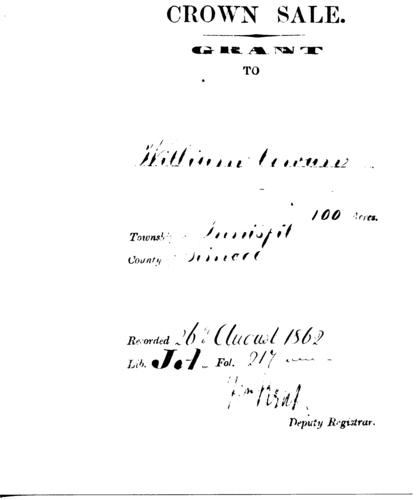 CROWN SALE.
GRANT
TO
William Cowan
100 Acres.
Township Innisfil
County Simcoe
Recorded 26th August 1862
Lib. Fol. 217
Deputy Registrar.